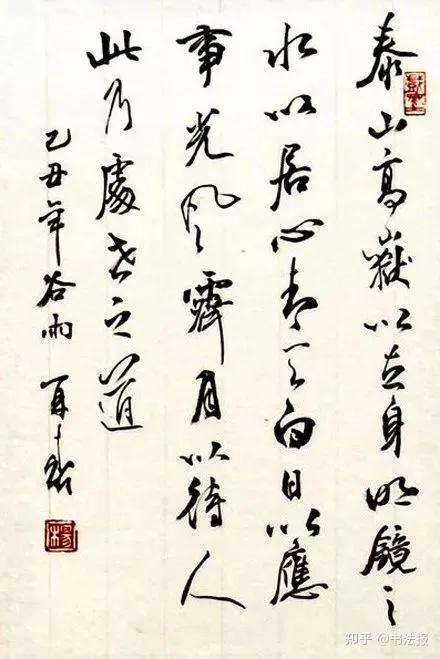 泰山高嶽以立身明鏡止
水以居心青天白日以應
事光風霽月以待人
此乃處世之道
己丑年谷雨
楊
知乎 @书法报